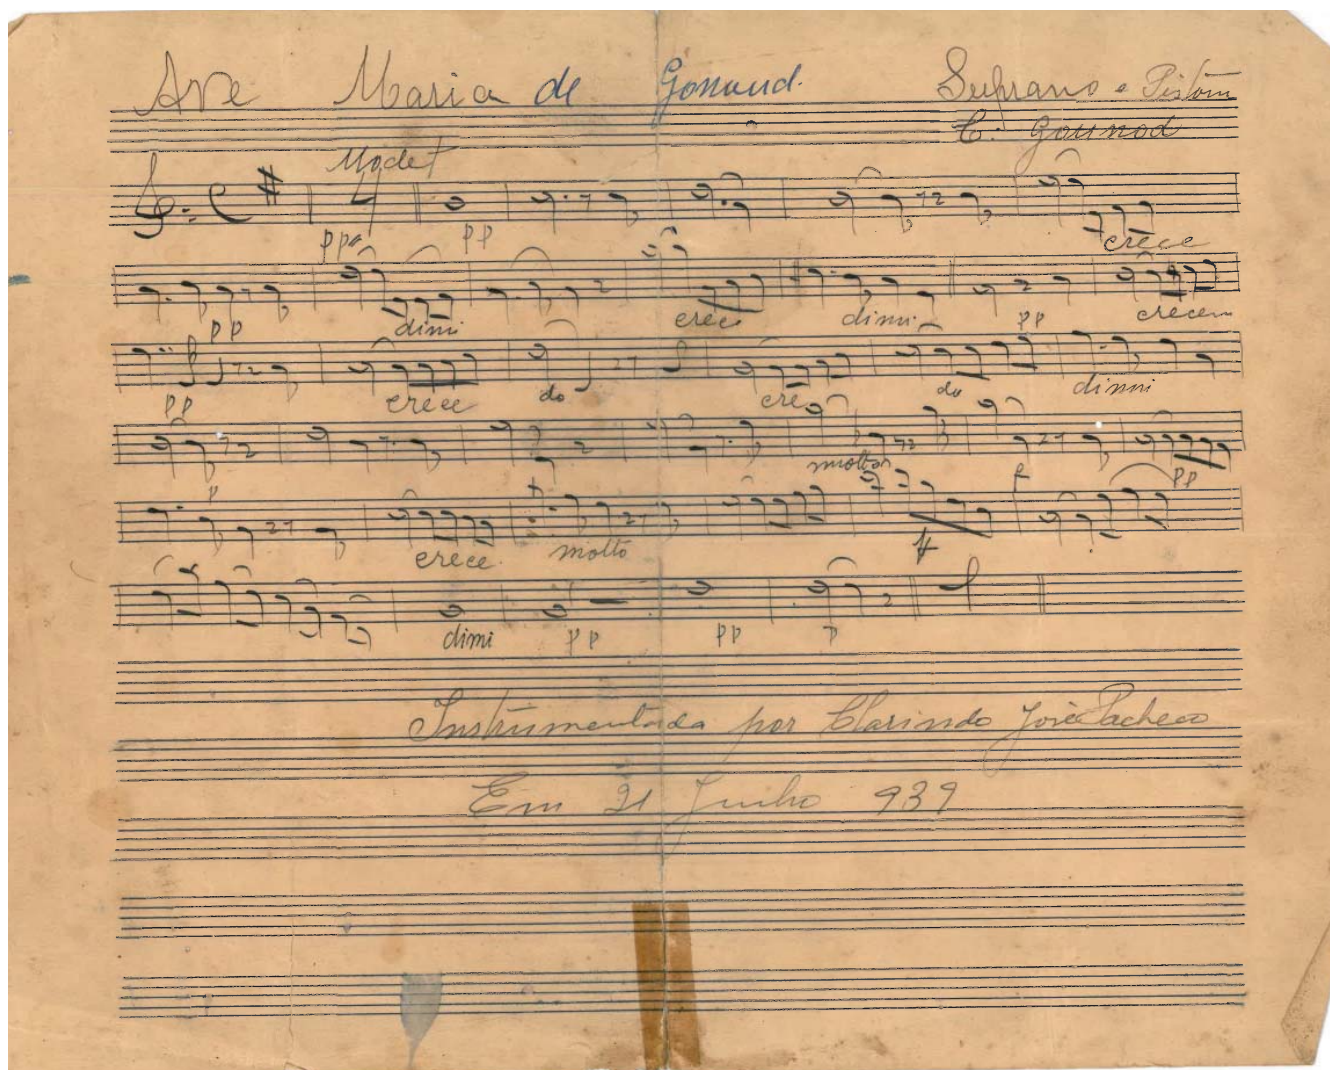 Ave Maria de Gonoud. Suprano e Pistom
C. Gounod
Modet
4
ppa pp crece
pp dimi crec dimi pp crecem
pp crece do cre do dimi
p molto f pp
crece. molto ff
dimi pp pp p
Instrumentada por Clarindo José Pacheco
Em 21 Junho 939